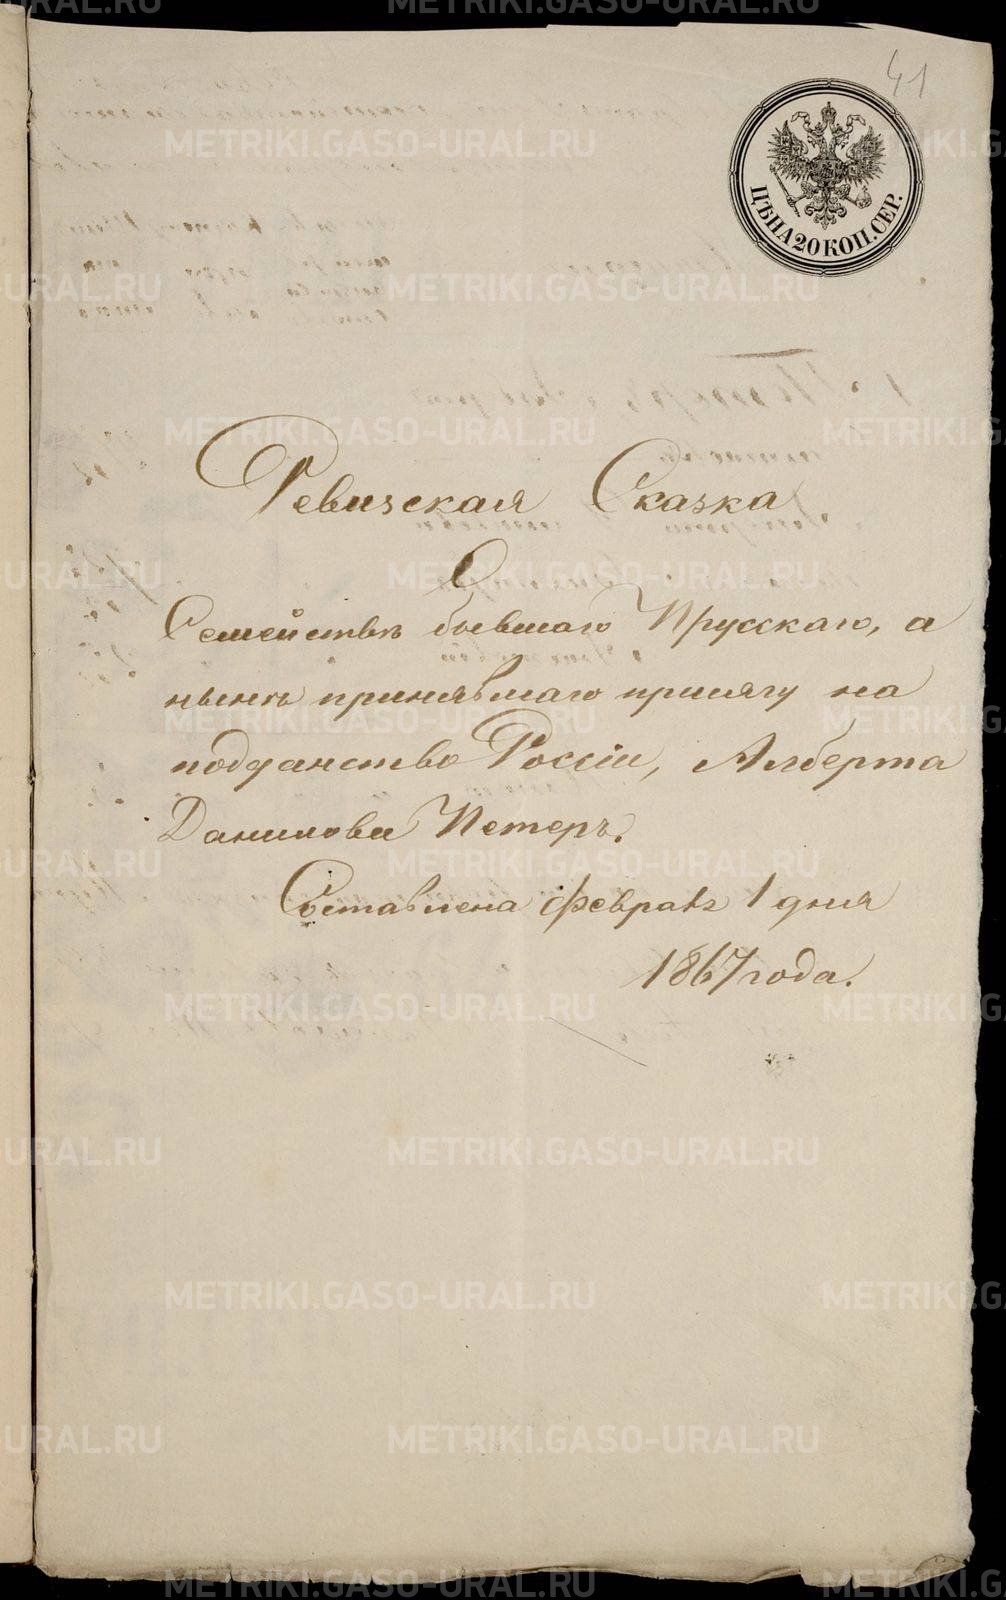 41
ЦѢНА 20 КОП. СЕР.
Ревизская Сказка
О
Семействѣ бывшаго Прусскаго, а
нынѣ принявшаго присягу на
подданство Россіи, Алберта
Данилова Петеръ.
Составлена февраля 1 дня
1867 года.
METRIKI.GASO-URAL.RU